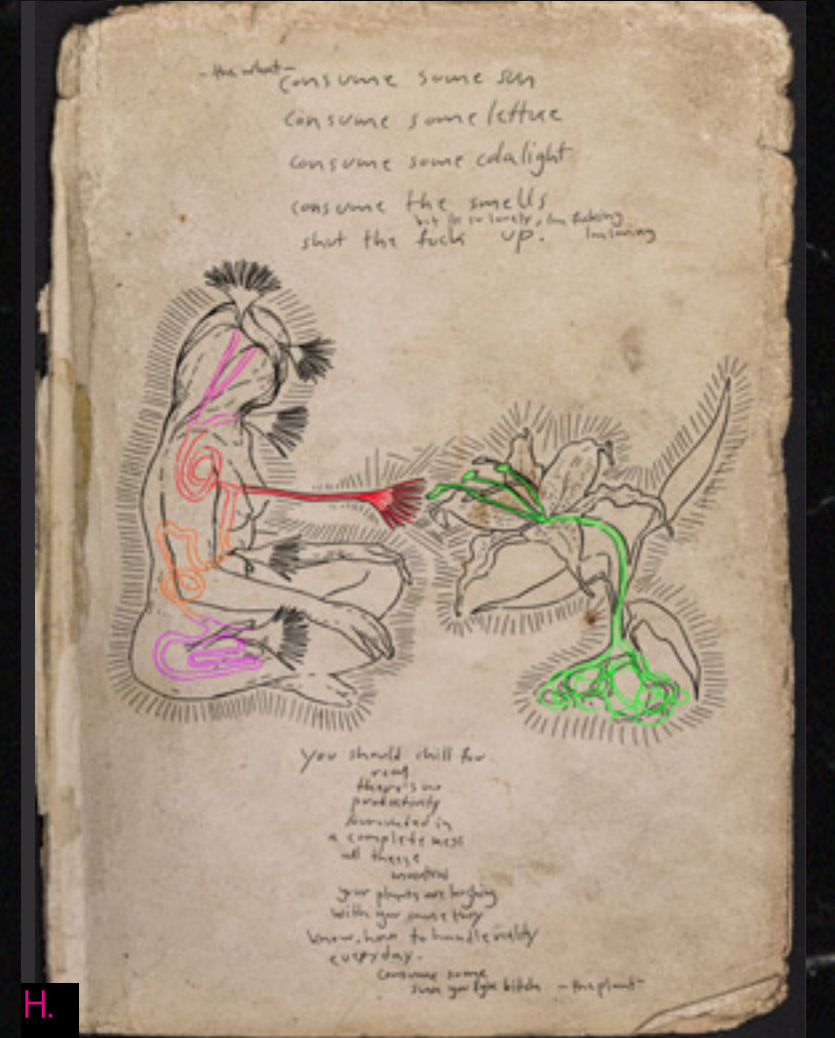 -the what-
consume some sun
consume some lettuce
consume some cdalight
consume the smells
but so lonely, Im fucking
shut the fuck up. Im loving
you should chill for
real
there's no
productivity
in
a complete mess
all these
your plants are laughing
with you cause they
know, how to handle reality
everyday.
consume some
sun you bitch -the plant-
H.